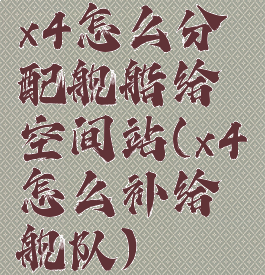 x4怎么分
配舰船给
空间站(x4
怎么补给
舰队)